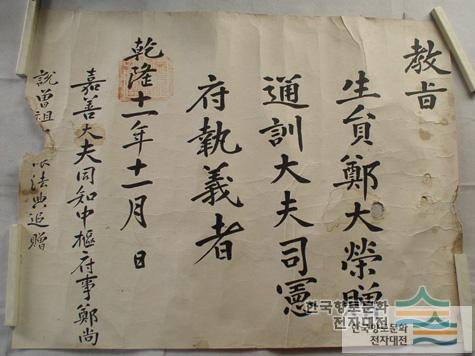 教旨
生員鄭大榮贈
通訓大夫司憲
府執義者
乾隆十一年十一月 日
嘉善大夫同知中樞府事鄭尚
說曾祖 以法典追贈
한국향토문화
전자대전
한국향토문화
전자대전